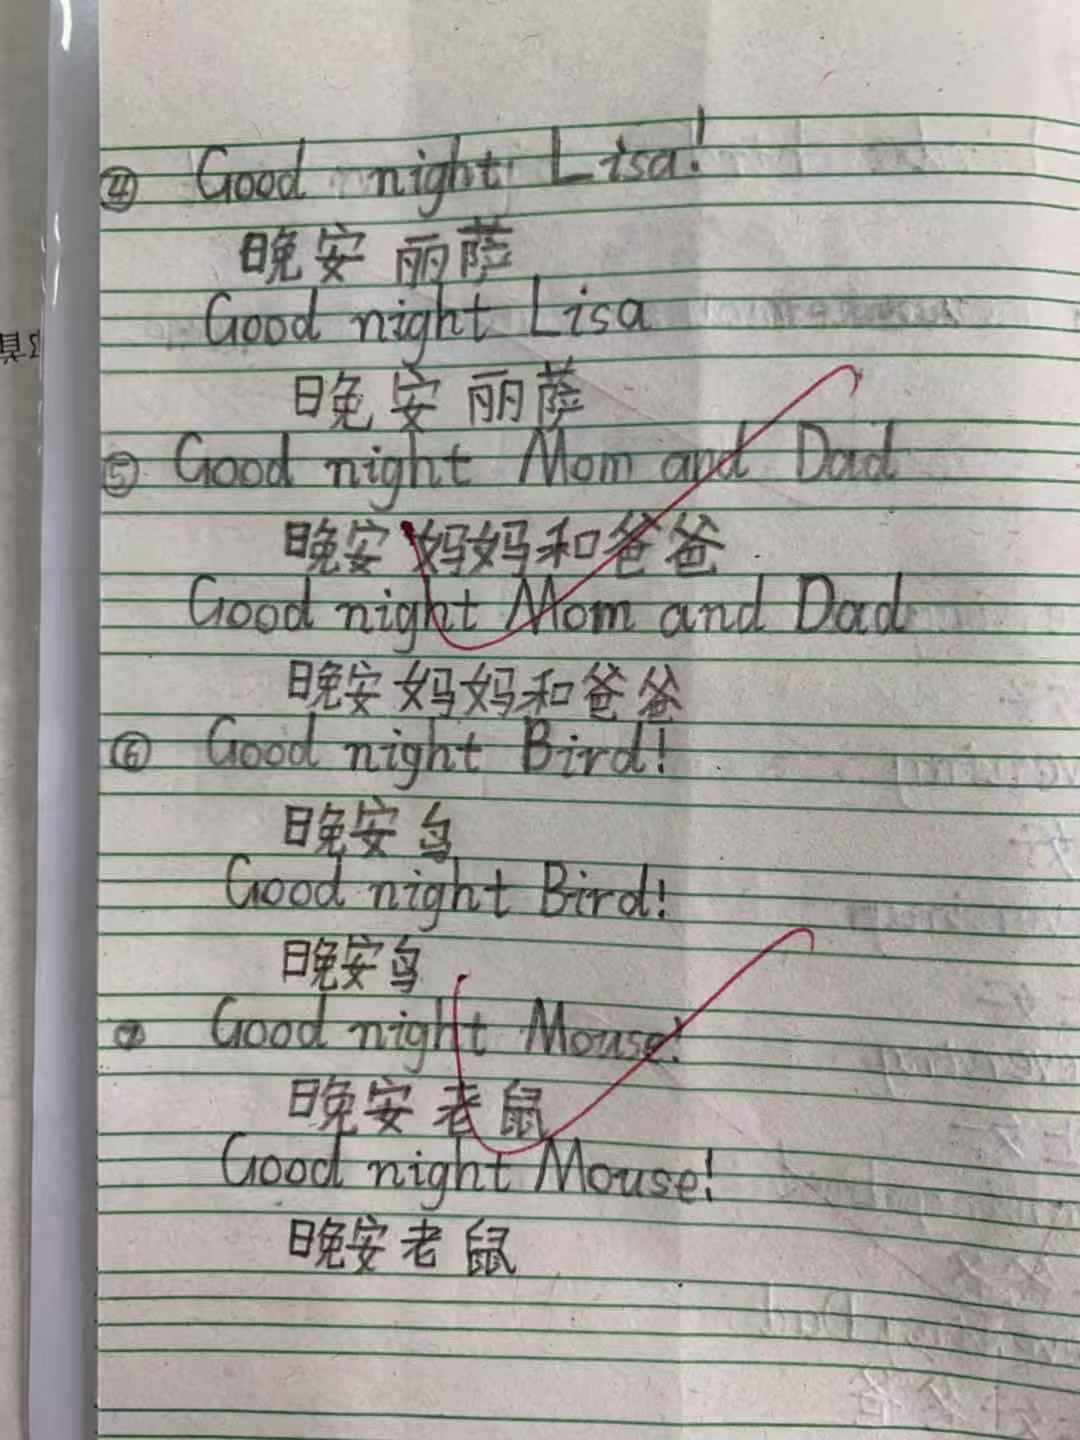 ④ Good night Lisa!
晚安 丽萨
Good night Lisa
晚安 丽萨
⑤ Good night Mom and Dad
晚安 妈妈和爸爸
Good night Mom and Dad
晚安 妈妈和爸爸
⑥ Good night Bird!
晚安 鸟
Good night Bird!
晚安鸟
⑦ Good night Mouse!
晚安 老鼠
Good night Mouse!
晚安 老鼠